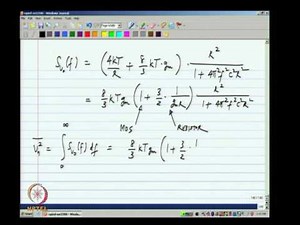 S_{v_o}(f) = (4kT/R + 8/3 kT·g_m) · R²/(1+4π²f²c²R²)
= 8/3 kT g_m (1 + 3/2 · 1/(g_m R)) · R²/(1+4π²f²c²R²)
MOS RESISTOR
\overline{v_o^2} = ∫_0^∞ S_{v_o}(f) df = 8/3 kT g_m (1 + 3/2 · 1